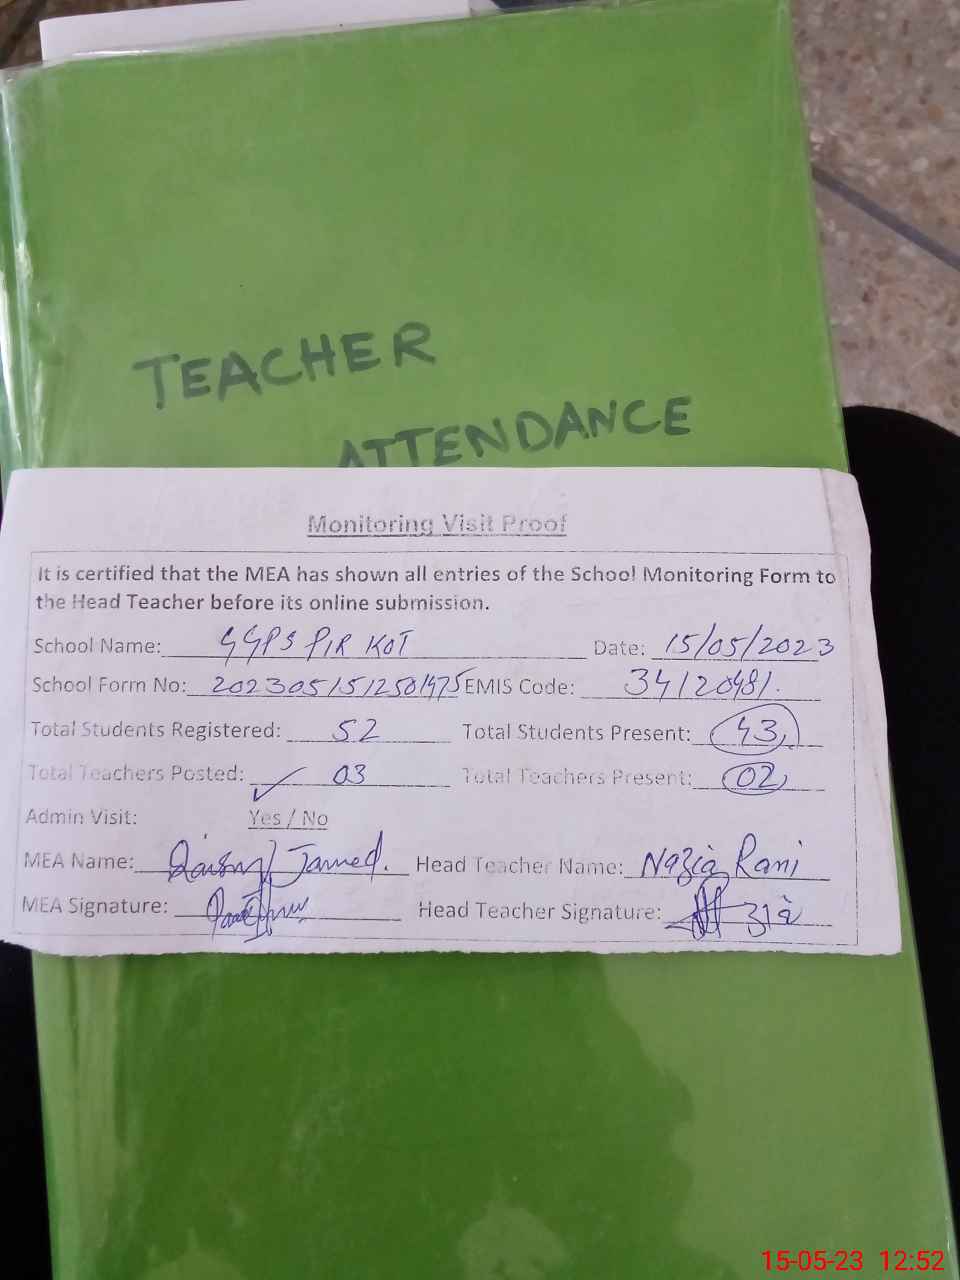 TEACHER
ATTENDANCE
Monitoring Visit Proof
It is certified that the MEA has shown all entries of the School Monitoring Form to
the Head Teacher before its online submission.
School Name: GGPS PIR KOT Date: 15/05/2023
School Form No: 2023051512501475 EMIS Code: 34120481.
Total Students Registered: 52 Total Students Present: 43
Total Teachers Posted: 03 Total Teachers Present: 02
Admin Visit: Yes / No
MEA Name: Jameel. Head Teacher Name: Nazia Rani
MEA Signature: Head Teacher Signature:
15-05-23 12:52